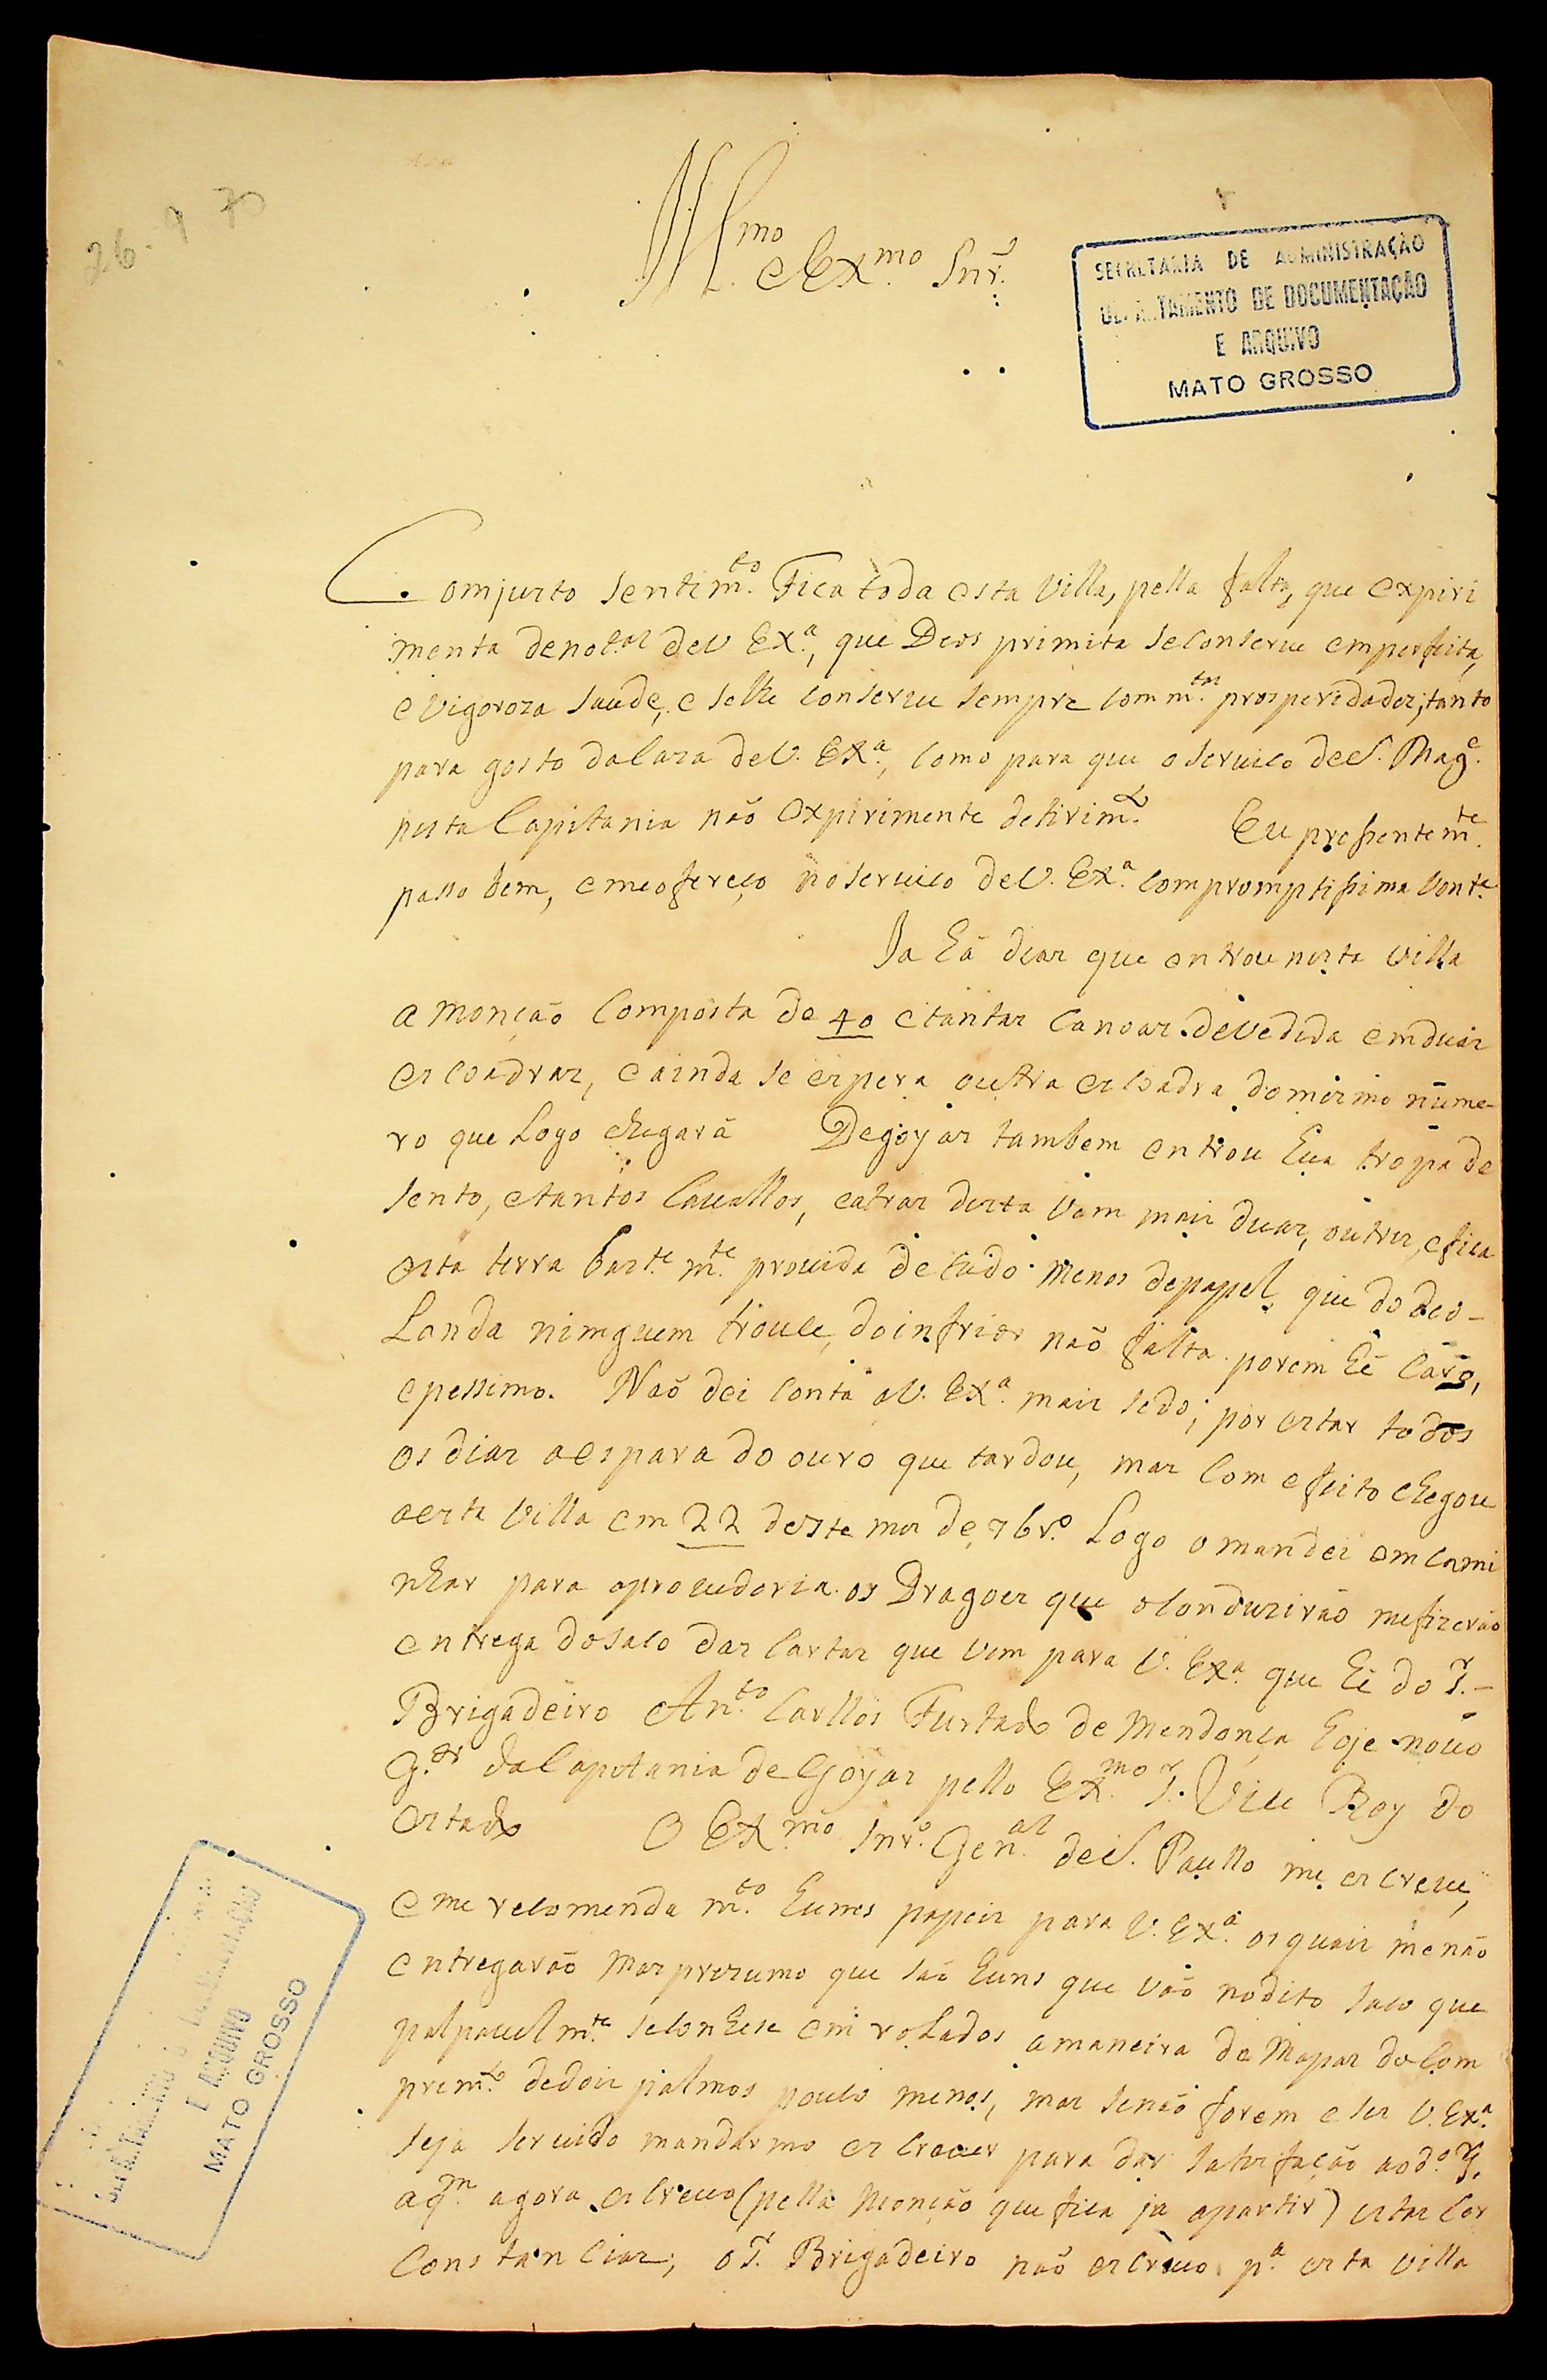 26-9 70
Ill.mo e Ex.mo Snr.
SECRETARIA DE ADMINISTRAÇÃO
DEPARTAMENTO DE DOCUMENTAÇÃO
E ARQUIVO
MATO GROSSO
Com justo sentim.to Fica toda esta Villa, pella falta, que expiri
menta de not.as de V Ex.a, que Deos primita se conserve em perfeita,
e vigoroza saude, e se lhe conserve sempre com m.tas prosperidades, tanto
para gosto da caza de V. Ex.a, como para que o servico de S. Mag.e
nesta Capitania não expirimente detirim.to Eu prezentem.te
passo bem, e me ofereço no serviço de V. Ex.a com promptissima vont.e
Ja hâ dias que entrou nesta villa
a monção composta de 40 e tantas canoas devedida em duas
escoadras, e ainda se espera outra escoadra do mesmo nume-
ro que Logo chegarâ De goyas tambem entrou hua tropa de
sento, e tantos Cavallos, e atras desta vem mais duas, outras, e fica
esta terra bast.te m.te provida de tudo menos de papel, que do de o-
Landa nimguem trouce, do infrior não falta porem hê caro,
e pessimo. Não dei conta a V. Ex.a mais sedo; por estar todos
os dias a espara do ouro que tardou, mas com efeito chegou
a esta Villa em 22 deste mes de 7br.o Logo o mandei emcami
nhar para a provedoria os Dragoes que o conduzirão me fizerão
entrega do saco das cartas que vem para V. Ex.a que hê do S.r
Brigadeiro An.to Carllos Furtado de Mendonça hoje novo
G.or da Capitania de Goyas pello Ex.mo S.r Vice Rey do
estado O Ex.mo Snr. Gen.al de S. Paullo me escreve,
e me recomenda m.to huns papeis para V. Ex.a os quais me não
entregarão mas prezumo que são huns que vão no dito saco que
palpavelm.te se conhese em rolados a maneira de Mapas do com
prem.to de dois palmos pouco menos, mas se não forem esses V. Ex.a
seja servido mandarmo escrever para dar satisfação ao d.o S.r
a q.m agora escrevo (pella Monção que fica ja a partir) estas cor
constancias; o S.r Brigadeiro não escreveo p.a esta villa
E ARQUIVO
MATO GROSSO